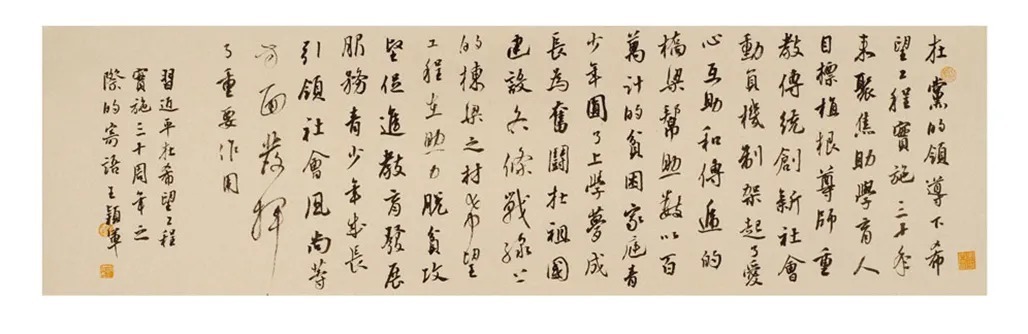 在黨的領導下希
望工程實施三十年
来聚焦助學育人
目標植根尊師重
教傳統創新社會
動員機制架起了愛
心互助和傳遞的
橋梁幫助數以百
萬計的貧困家庭青
少年圓了上學夢成
長為奮鬪在祖國
建設各條戰線上
的棟梁之材希望
工程在助力脫貧攻
堅促進教育發展
服務青少年成長
引領社會風尚等
方面發揮
了重要作用
習近平在希望工程
實施三十周年之
際的寄語王穎軍